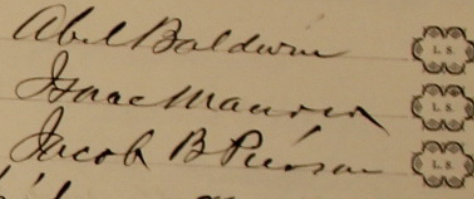 Abel Baldwin L. S.
Isaac L. S.
Jacob B Pierson L. S.